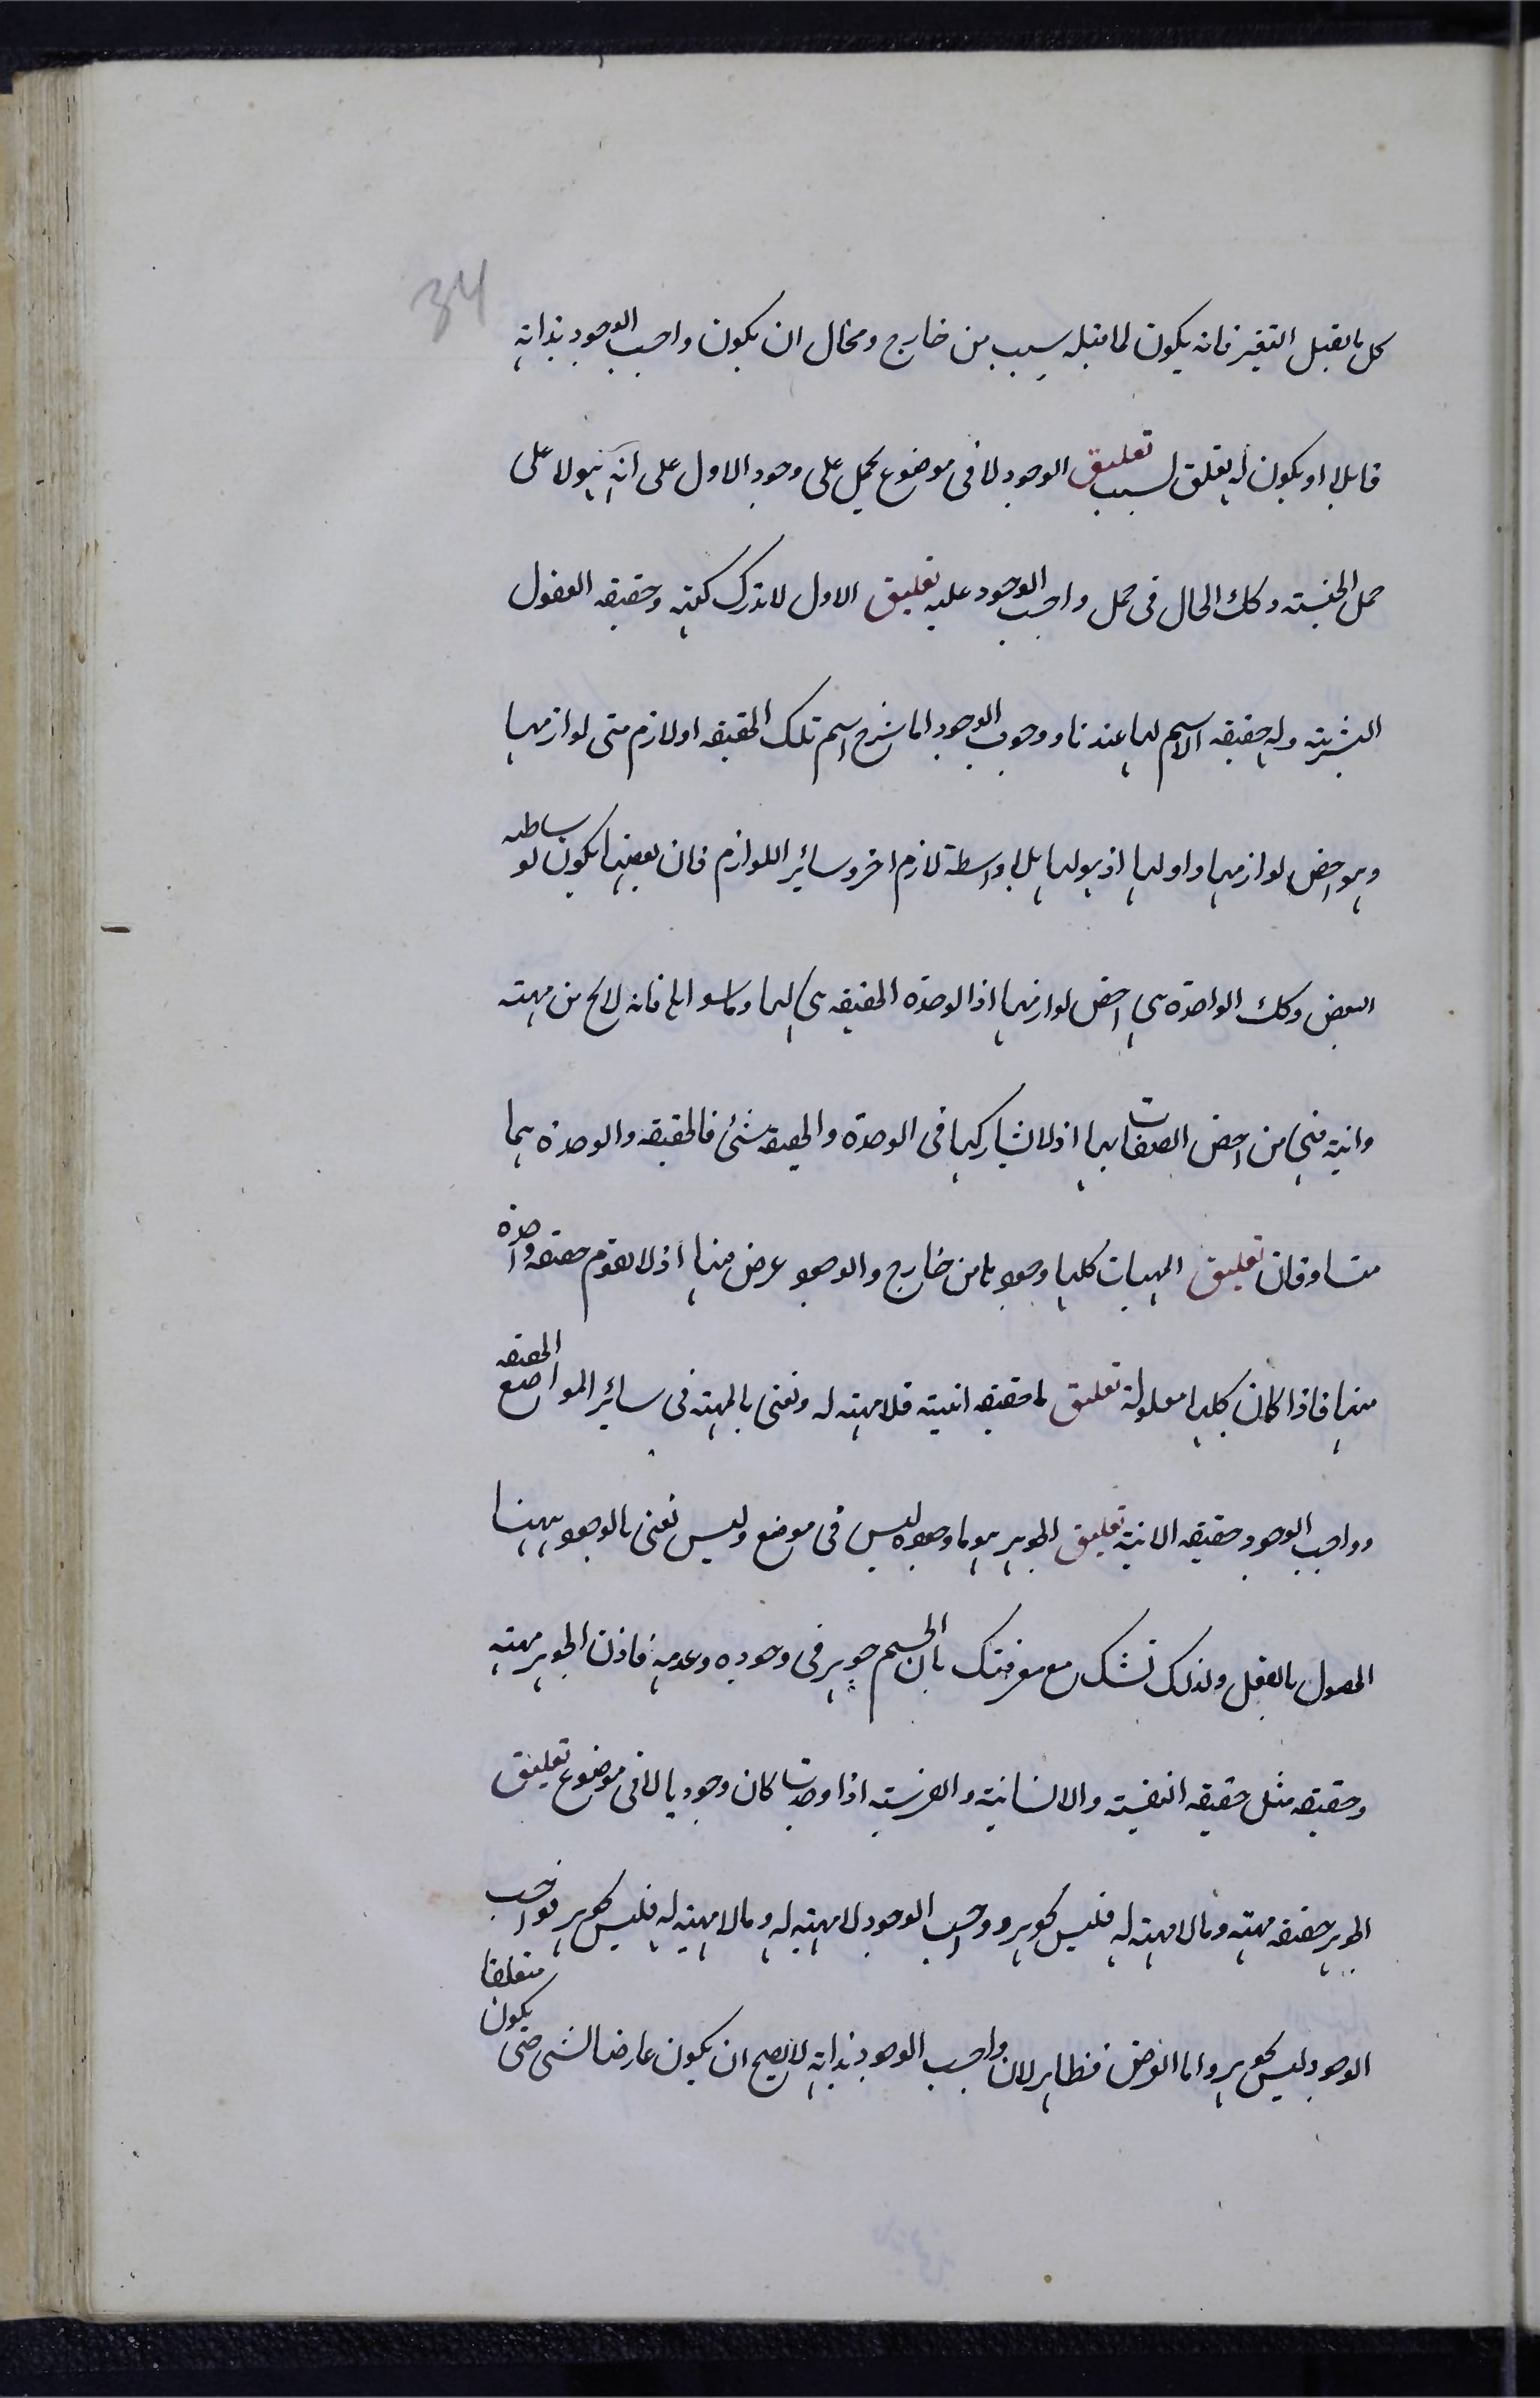 34
كل ما يقبل التغير فانه يكون لما قبله سبب من خارج ومحال ان يكون واجب الوجود بذاته
قابلا او يكون له تعلق لسبب تعليق الوجود لا فى موضوع يحمل على وجود الاول على انه هو لا على
حمل الجنسية وكك الحال فى حمل واجب الوجود عليه تعليق الاول لا تدرك كنهه وحقيقه العقول
البشرية وله حقيقه لا اسم لها عندنا ووجوب الوجود اما شرح اسم تلك الحقيقه او لازم من لوازمها
وهو اخص لوازمها واولها اذ هو لها بلا واسطة لازم اخر وسائر اللوازم فان بعضها يكون بوساطه
البعض وكك الواحدة هى اخص لوازمها اذ الوحدة الحقيقه هى لها وما سواها فانه لا يخ من مهيته
وانيته فهى من اخص الصفات بها اذ لا يشاركها فى الوحدة والحقيقه شئ فالحقيقه والوحدة هما
متساوقان تعليق المهيات كلها وجودها من خارج والوجود عرض فيها اذ لا يقوم حقيقه واحدة
منها فاذا كان كلها معلولة تعليق ما حقيقه انيته فلا مهية له ونعنى بالمهية فى سائر المواضع الحقيقه
وواجب الوجود حقيقه الانية تعليق الجوهر هو ما وجوده ليس فى موضع وليس نعنى بالوجود ههنا
الحصول بالفعل ولذلك تشك مع معرفتك بان الجسم جوهر فى وجوده وعدمه فاذن الجوهر مهيته
وحقيقه مثل حقيقه النفسية والانسانية والفرسية اذا وجدت كان وجودها لا فى موضوع تعليق
الجوهر حقيقه مهية وما لا مهية له فليس بجوهر وواجب الوجود لا مهية له وما لا مهية له فليس بجوهر فواجب
الوجود ليس بجوهر واما العرض فظاهر لان واجب الوجود بذاته لا يصح ان يكون عارضا لشى حتى يكون متعلقا